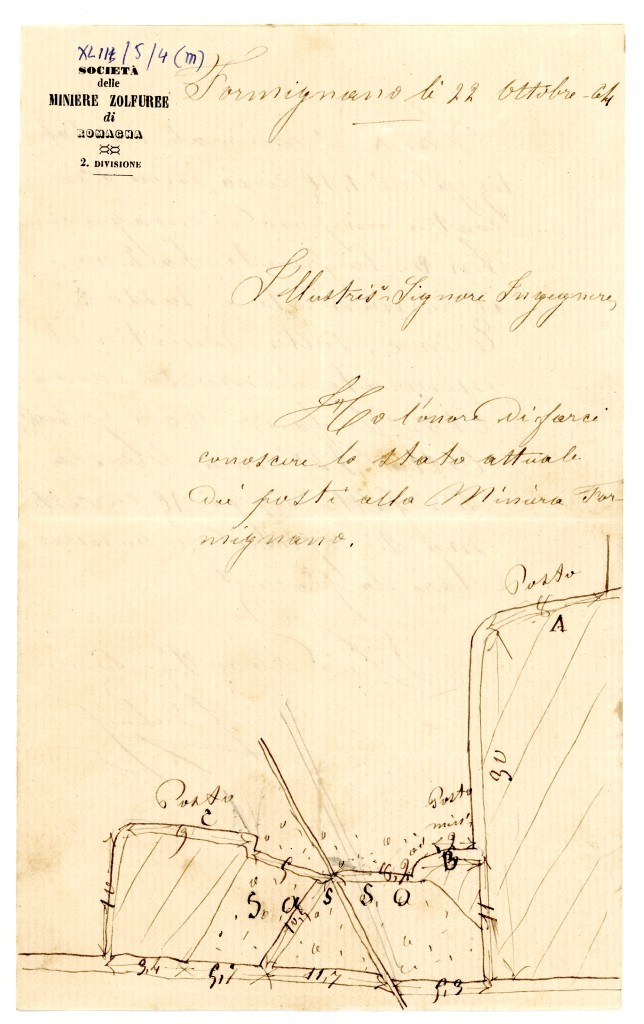 XLIII/5/4 (m)
SOCIETÀ
delle
MINIERE ZOLFUREE
di
ROMAGNA
2. DIVISIONE
Formignano li 22 Ottobre - 64
Illustris.º Signore Ingegnere,
Ho l'onore di farci
conoscere lo stato attuale
dei posti alla Miniera For-
mignano.
Posto
A
30
Posto
B
Posto
C
9
5
8,2
2
S a s s o
10,5
11
10
3,4
5,7
11,7
5,3